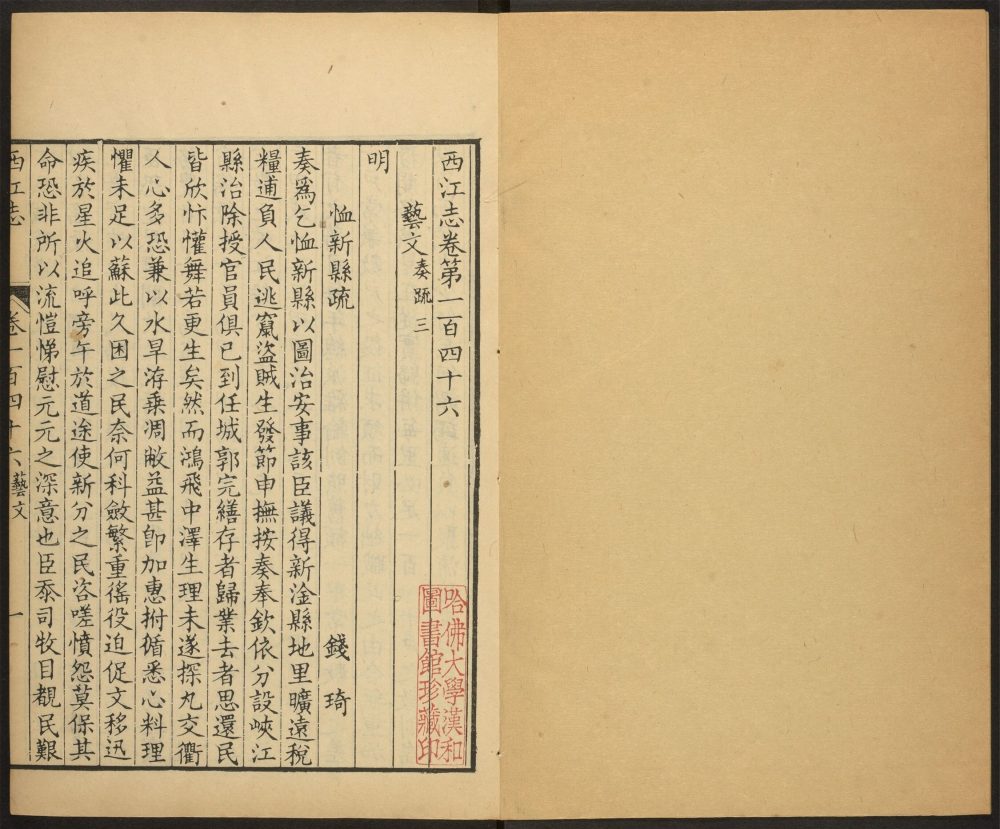 西江志卷第一百四十六
藝文 奏疏三
明
恤新縣疏 錢琦
奏爲乞恤新縣以圖治安事該臣議得新淦縣地里曠遠稅
糧逋負人民逃竄盜賊生發節申撫按奏奉欽依分設峽江
縣治除授官員俱已到任城郭完繕存者歸業去者思還民
皆欣忭懽舞若更生矣然而鴻飛中澤生理未遂探丸交衢
人心多恐兼以水旱洊乘凋敝益甚卽加惠拊循悉心料理
懼未足以蘇此久困之民奈何科斂繁重徭役迫促文移迅
疾於星火追呼旁午於道途使新分之民咨嗟憤怨莫保其
命恐非所以流愷悌慰元元之深意也臣忝司牧目覩民艱
西江志 卷一百四十六 藝文 一
哈佛大學漢和
圖書館珍藏印